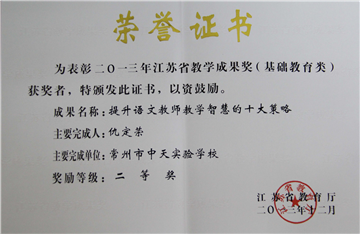 荣誉证书
为表彰二〇一三年江苏省教学成果奖(基础教育类)
获奖者,特颁发此证书,以资鼓励。
成果名称:提升语文教师教学智慧的十大策略
主要完成人:仇定荣
主要完成单位:常州市中天实验学校
奖励等级:二等奖
江苏省教育厅
二〇一三年十二月